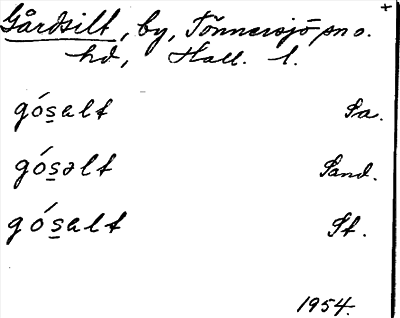 Gårdsilt, by, Tönnersjö sn o.
hd, Hall. l.
gósalt Sa.
gósəlt Sand.
gósalt St.
1954.